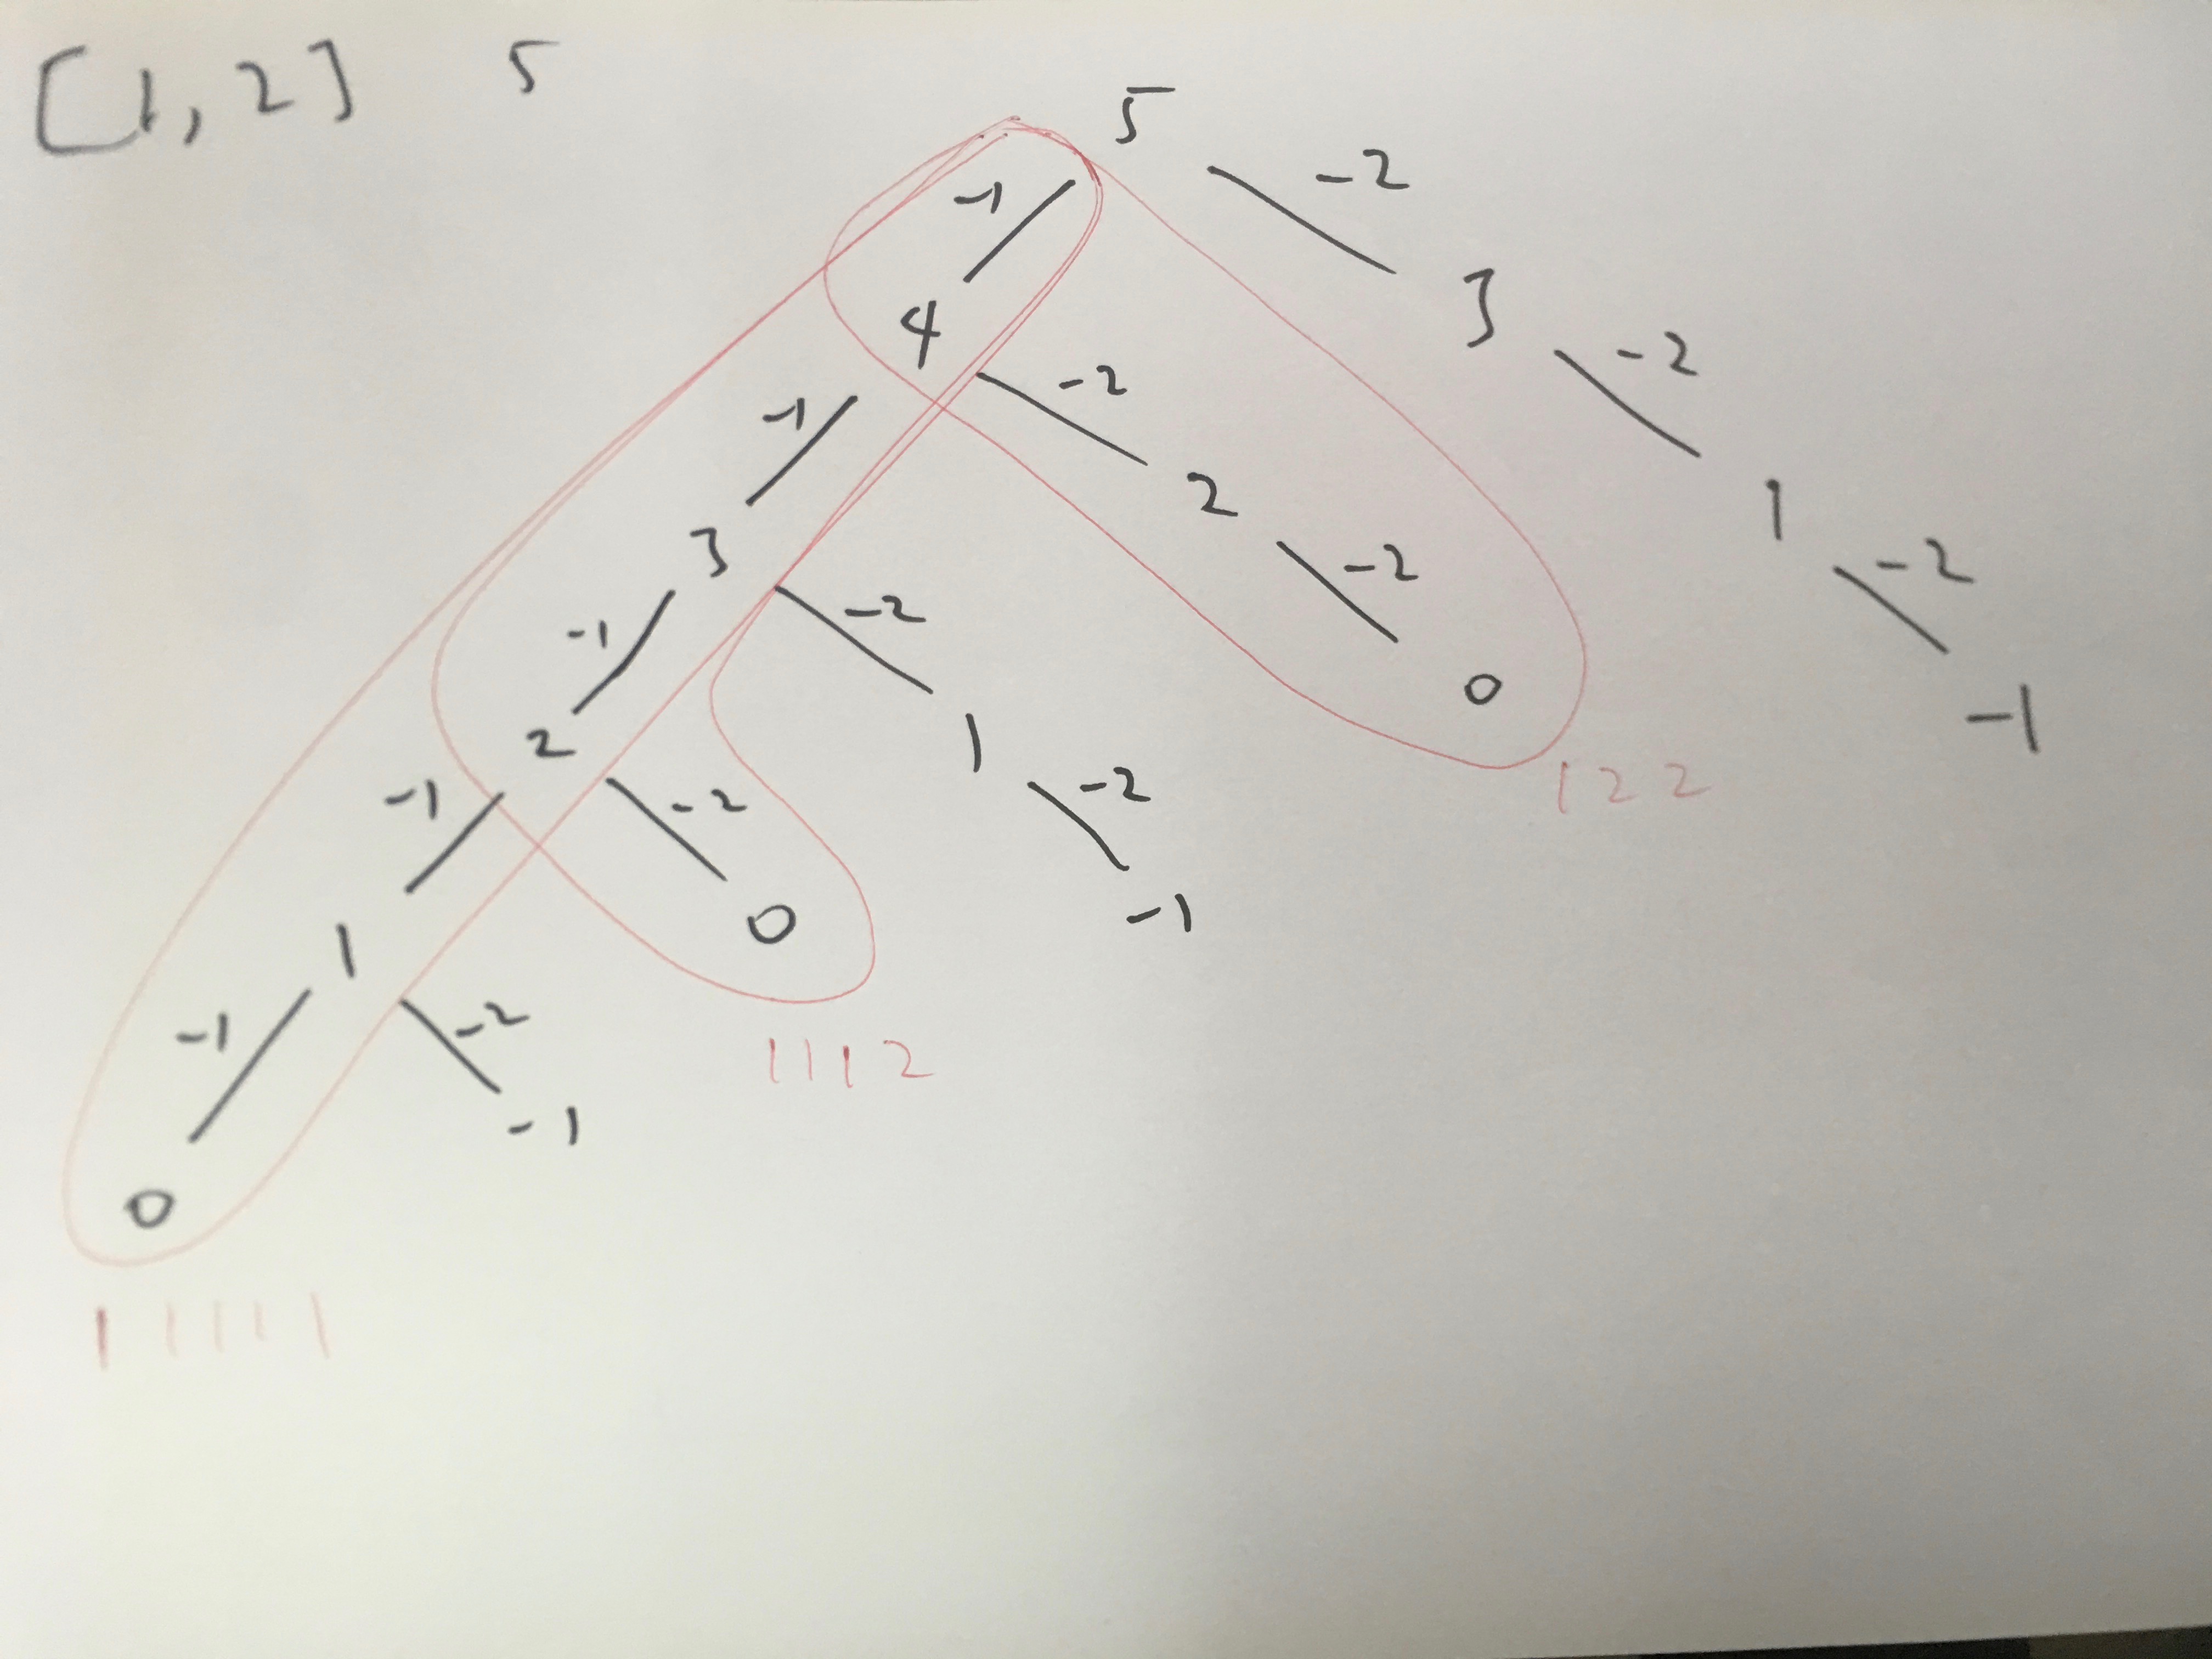 [1,2] 5
5
-1 -2
4 3
-1 -2 -2
3 2 1
-1 -2 -2 -2
2 1 0 -1
-1 -2 -2 122
1 0 -1
-1 -2 1112
0 -1
11111